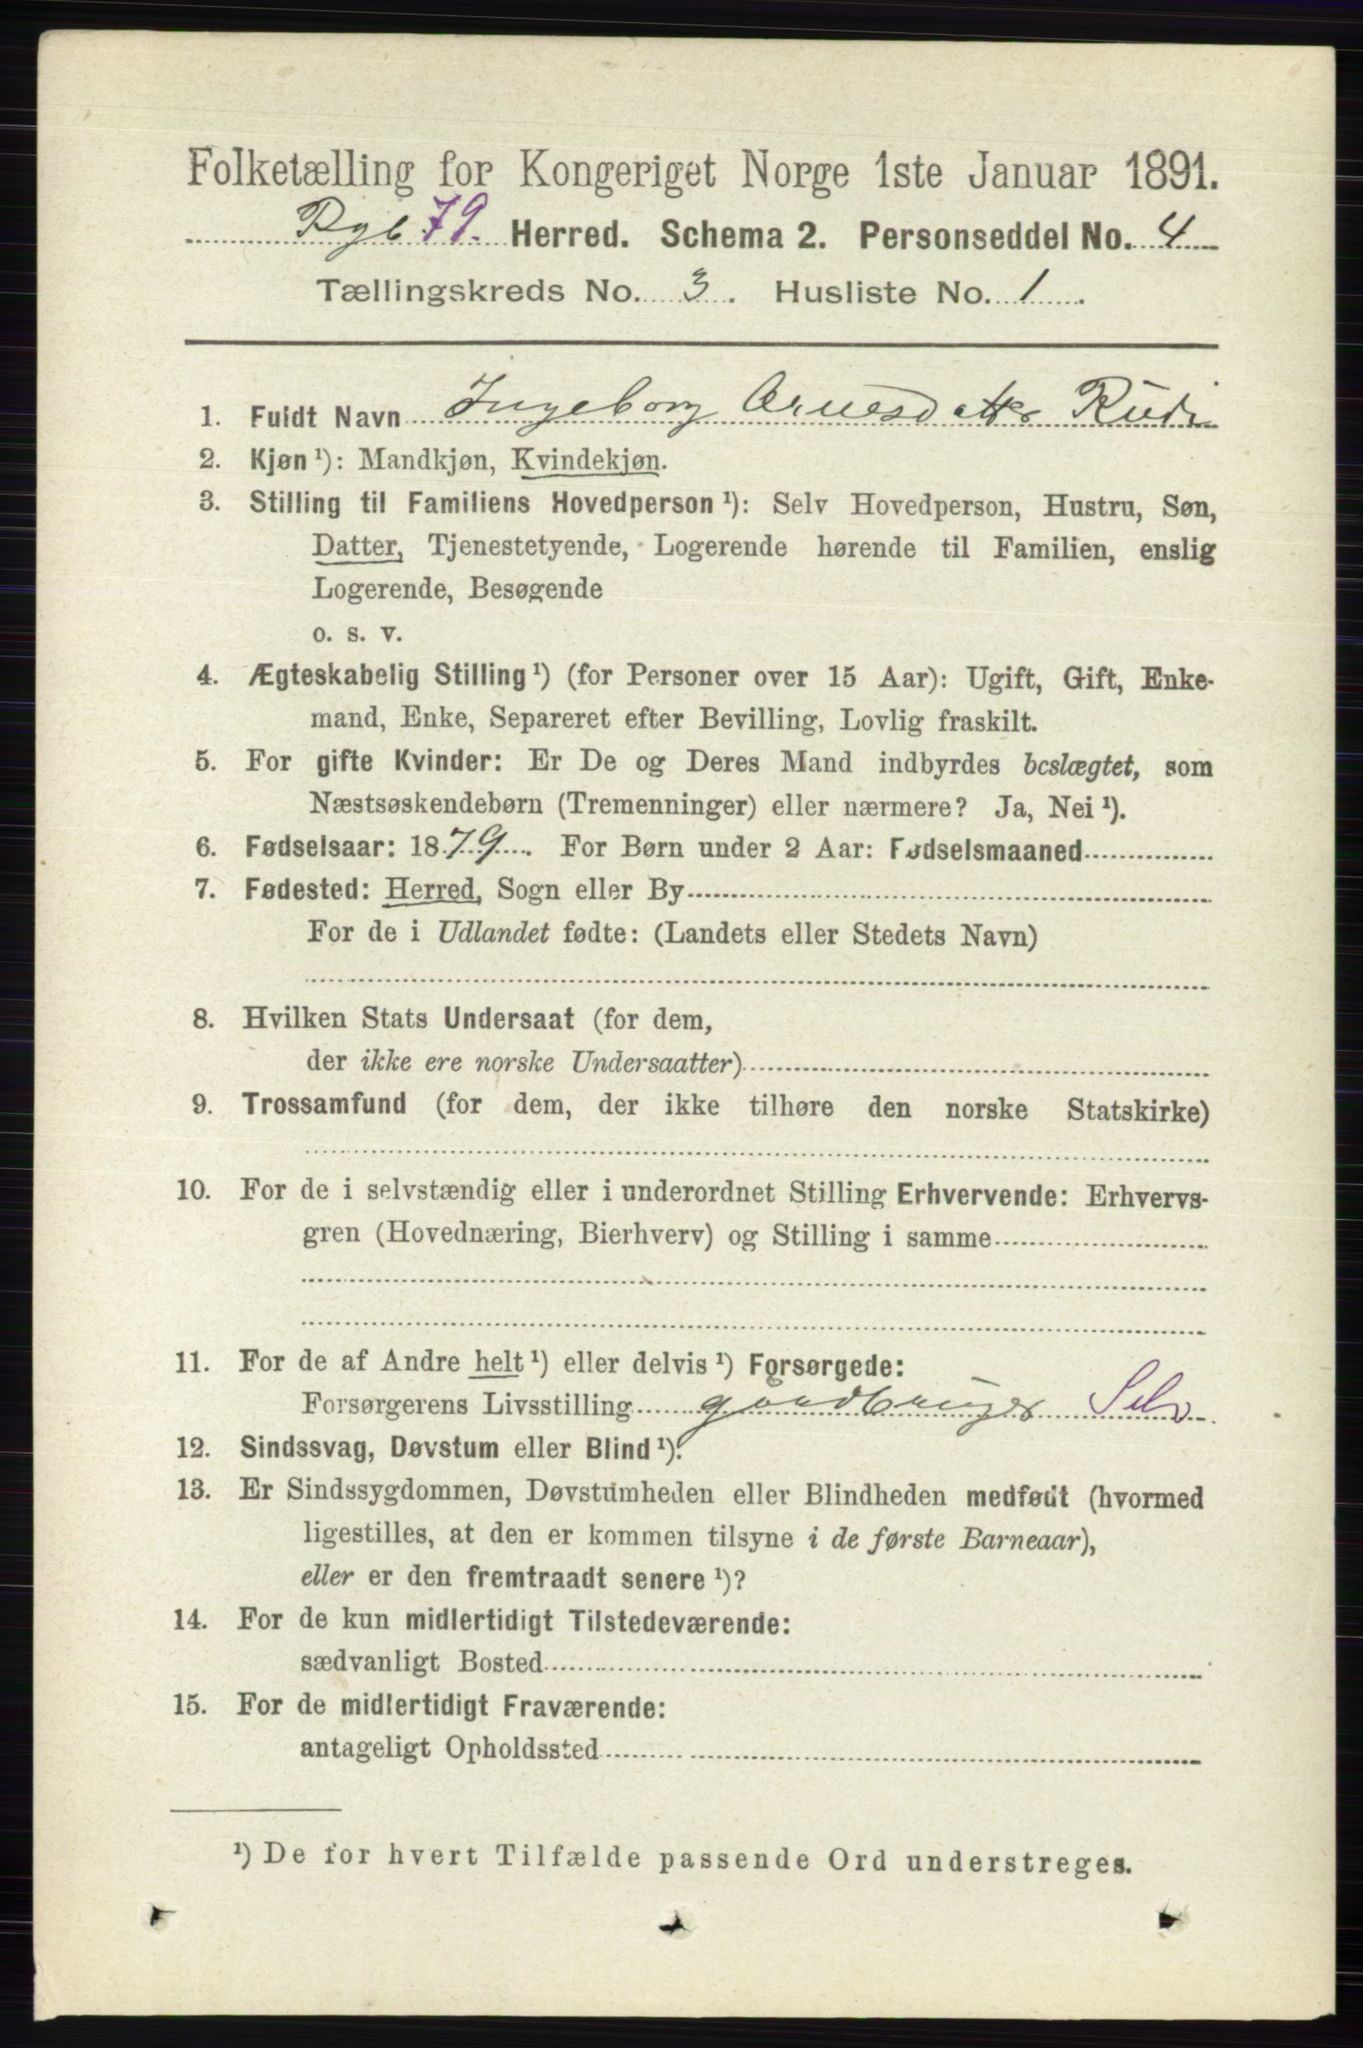 Folketælling for Kongeriget Norge 1ste Januar 1891.
79. Herred. Schema 2. Personseddel No. 4
Tællingskreds No. 3. Husliste No. 1.
1. Fuldt Navn Ingeborg Arnesdatter Rudi
2. Kjøn ¹): Mandkjøn, Kvindekjøn.
3. Stilling til Familiens Hovedperson ¹): Selv Hovedperson, Hustru, Søn,
Datter, Tjenestetyende, Logerende hørende til Familien, enslig
Logerende, Besøgende
o. s. v.
4. Ægteskabelig Stilling ¹) (for Personer over 15 Aar): Ugift, Gift, Enke-
mand, Enke, Separeret efter Bevilling, Lovlig fraskilt.
5. For gifte Kvinder: Er De og Deres Mand indbyrdes beslægtet, som
Næstsøskendebørn (Tremenninger) eller nærmere? Ja, Nei ¹).
6. Fødselsaar: 1879. For Børn under 2 Aar: Fødselsmaaned
7. Fødested: Herred, Sogn eller By
For de i Udlandet fødte: (Landets eller Stedets Navn)
8. Hvilken Stats Undersaat (for dem,
der ikke ere norske Undersaatter)
9. Trossamfund (for dem, der ikke tilhøre den norske Statskirke)
10. For de i selvstændig eller i underordnet Stilling Erhvervende: Erhvervs-
gren (Hovednæring, Bierhverv) og Stilling i samme
11. For de af Andre helt ¹) eller delvis ¹) Forsørgede:
Forsørgerens Livsstilling gaardbruger Selv
12. Sindssvag, Døvstum eller Blind ¹).
13. Er Sindssygdommen, Døvstumheden eller Blindheden medfødt (hvormed
ligestilles, at den er kommen tilsyne i de første Barneaar),
eller er den fremtraadt senere ¹)?
14. For de kun midlertidigt Tilstedeværende:
sædvanligt Bosted
15. For de midlertidigt Fraværende:
antageligt Opholdssted
¹) De for hvert Tilfælde passende Ord understreges.